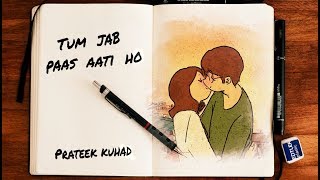 TUM JAB
PAAS AATI HO
PRATEEK KUHAD